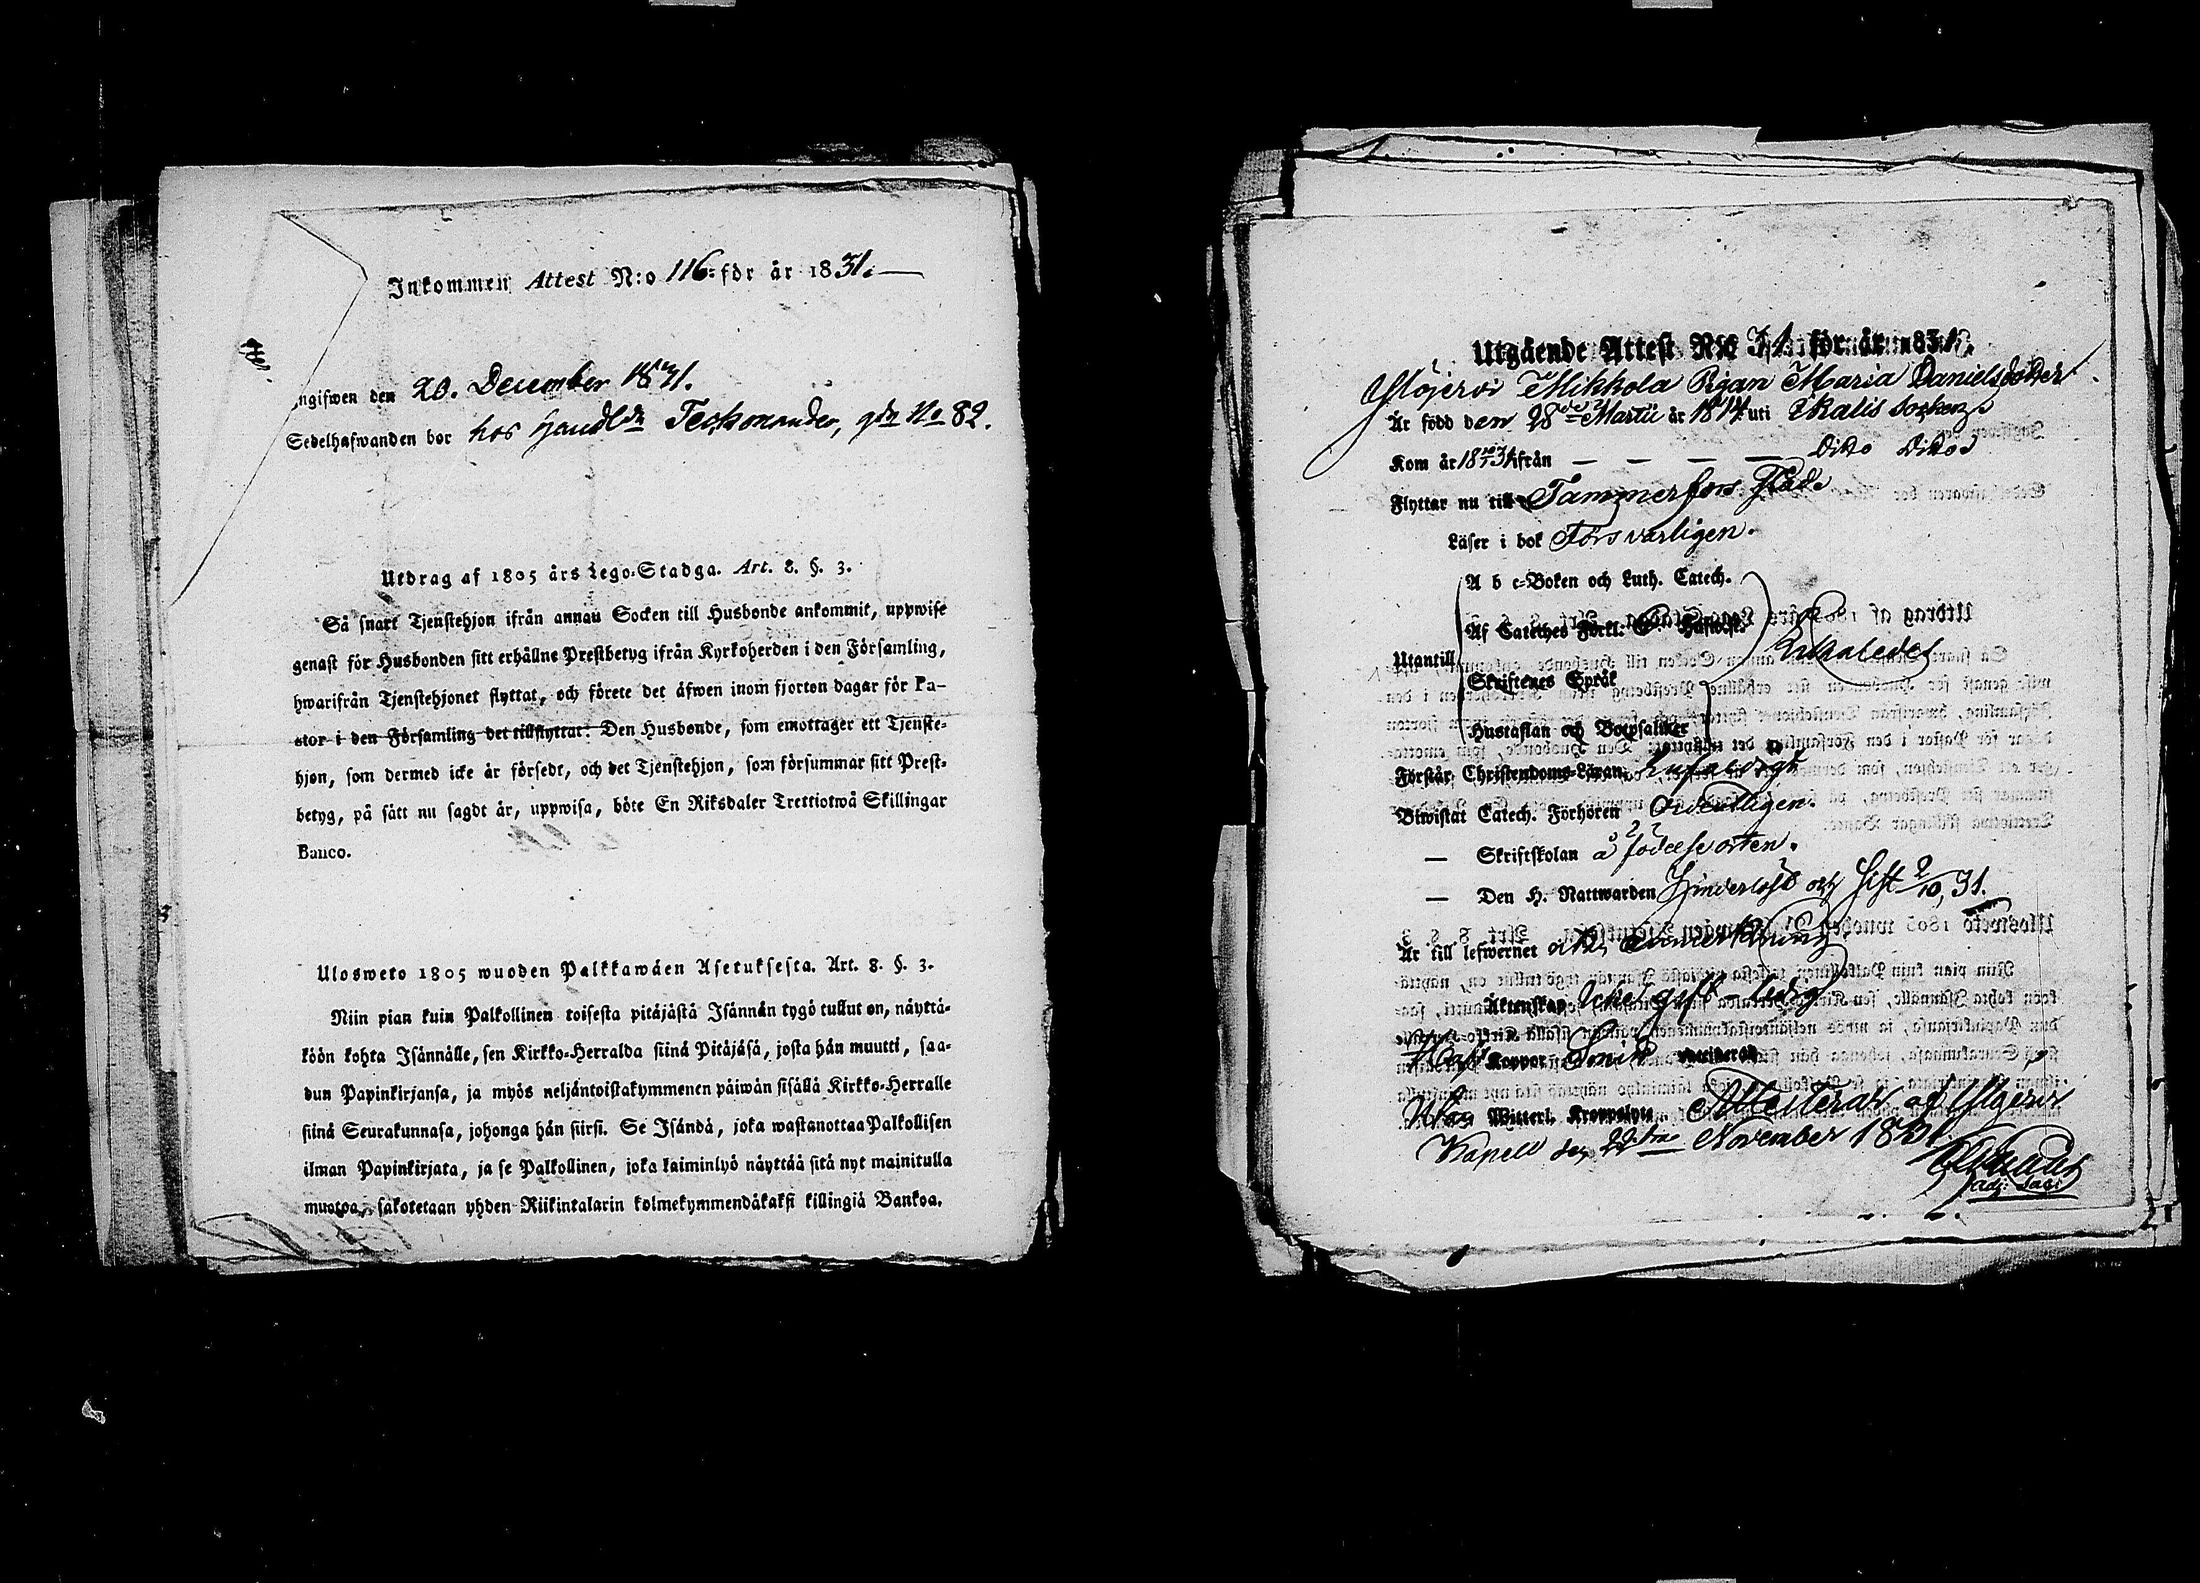 Inkommen Attest N:o 116 för år 1831.
ngifwen den 20. December 1831.
Sedelhafwanden bor hos Handl:dn Teckonander, gdn No 82.
Utdrag af 1805 års Lego-Stadga. Art. 8. §. 3.
Så snart Tjenstehjon ifrån annan Socken till Husbonde ankommit, uppwise
genast för Husbonden sitt erhållne Prestbetyg ifrån Kyrkoherden i den Församling,
hwarifrån Tjenstehjonet flyttat, och förete det äfwen inom fjorton dagar för Pa-
stor i den Församling det tillflyttat. Den Husbonde, som emottager ett Tjenste-
hjon, som dermed icke är försedt, och det Tjenstehjon, som försummar sitt Prest-
betyg, på sätt nu sagdt är, uppwisa, böte En Riksdaler Trettiotwå Skillingar
Banco.
Ulosweto 1805 wuoden Palkkawäen Asetuksesta. Art. 8. §. 3.
Niin pian kuin Palkollinen toisesta pitäjästä Isännän tygö tullut on, näyttä-
köön kohta Isännälle, sen Kirkko-Herralda siinä Pitäjäsä, josta hän muutti, saa-
dun Papinkirjansa, ja myös neljäntoistakymmenen päiwän sisällä Kirkko-Herralle
siinä Seurakunnasa, johonga hän siirsi. Se Isändä, joka wastanottaa Palkollisen
ilman Papinkirjata, ja se Palkollinen, joka laiminlyö näyttää sitä nyt mainitulla
muotoa, sakotetaan yhden Riikintalarin kolmekymmendäkaksi killingiä Bankoa.
Utgående Attest N:o 31 för år 1831.
Mikkola Pigan Maria Danielsdotter
Är född den 28de Martii år 1814 uti Ikalis Socken
Kom år 1831 från — — — — Dito Dito
Flyttar nu till Tammerfors Stad.
Läser i bok Försvarligen.
A b c-Boken och Luth. Catech.
Af Cateches Förkl.
Utantill
Skriftenes Språk
Enkaledes
Hustaflan och Botpsalmer
Förstår Christendoms-Läran
Biwistat Catech. Förhören Ordentligen.
— Skriftskolan å födelseorten.
— Den H. Nattwarden Hinderlöst och sist 2/10, 31.
Är till lefwernet utan anmärkning
Äktenskap Icke gift
Koppor
Witterl. Kroppslyte Attesterar af
Kapell den 22dra November 1831
Adj: Saci